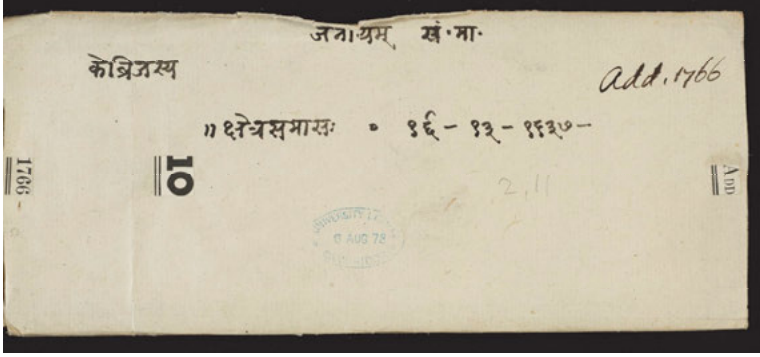 जनायम् सं·मा·
केब्रिजस्य
Add. 1766
॥ क्षेत्रसमासः ० १६ – १३ – १६३७ –
1766
10
2,11
ADD
UNIVERSITY
AUG 78